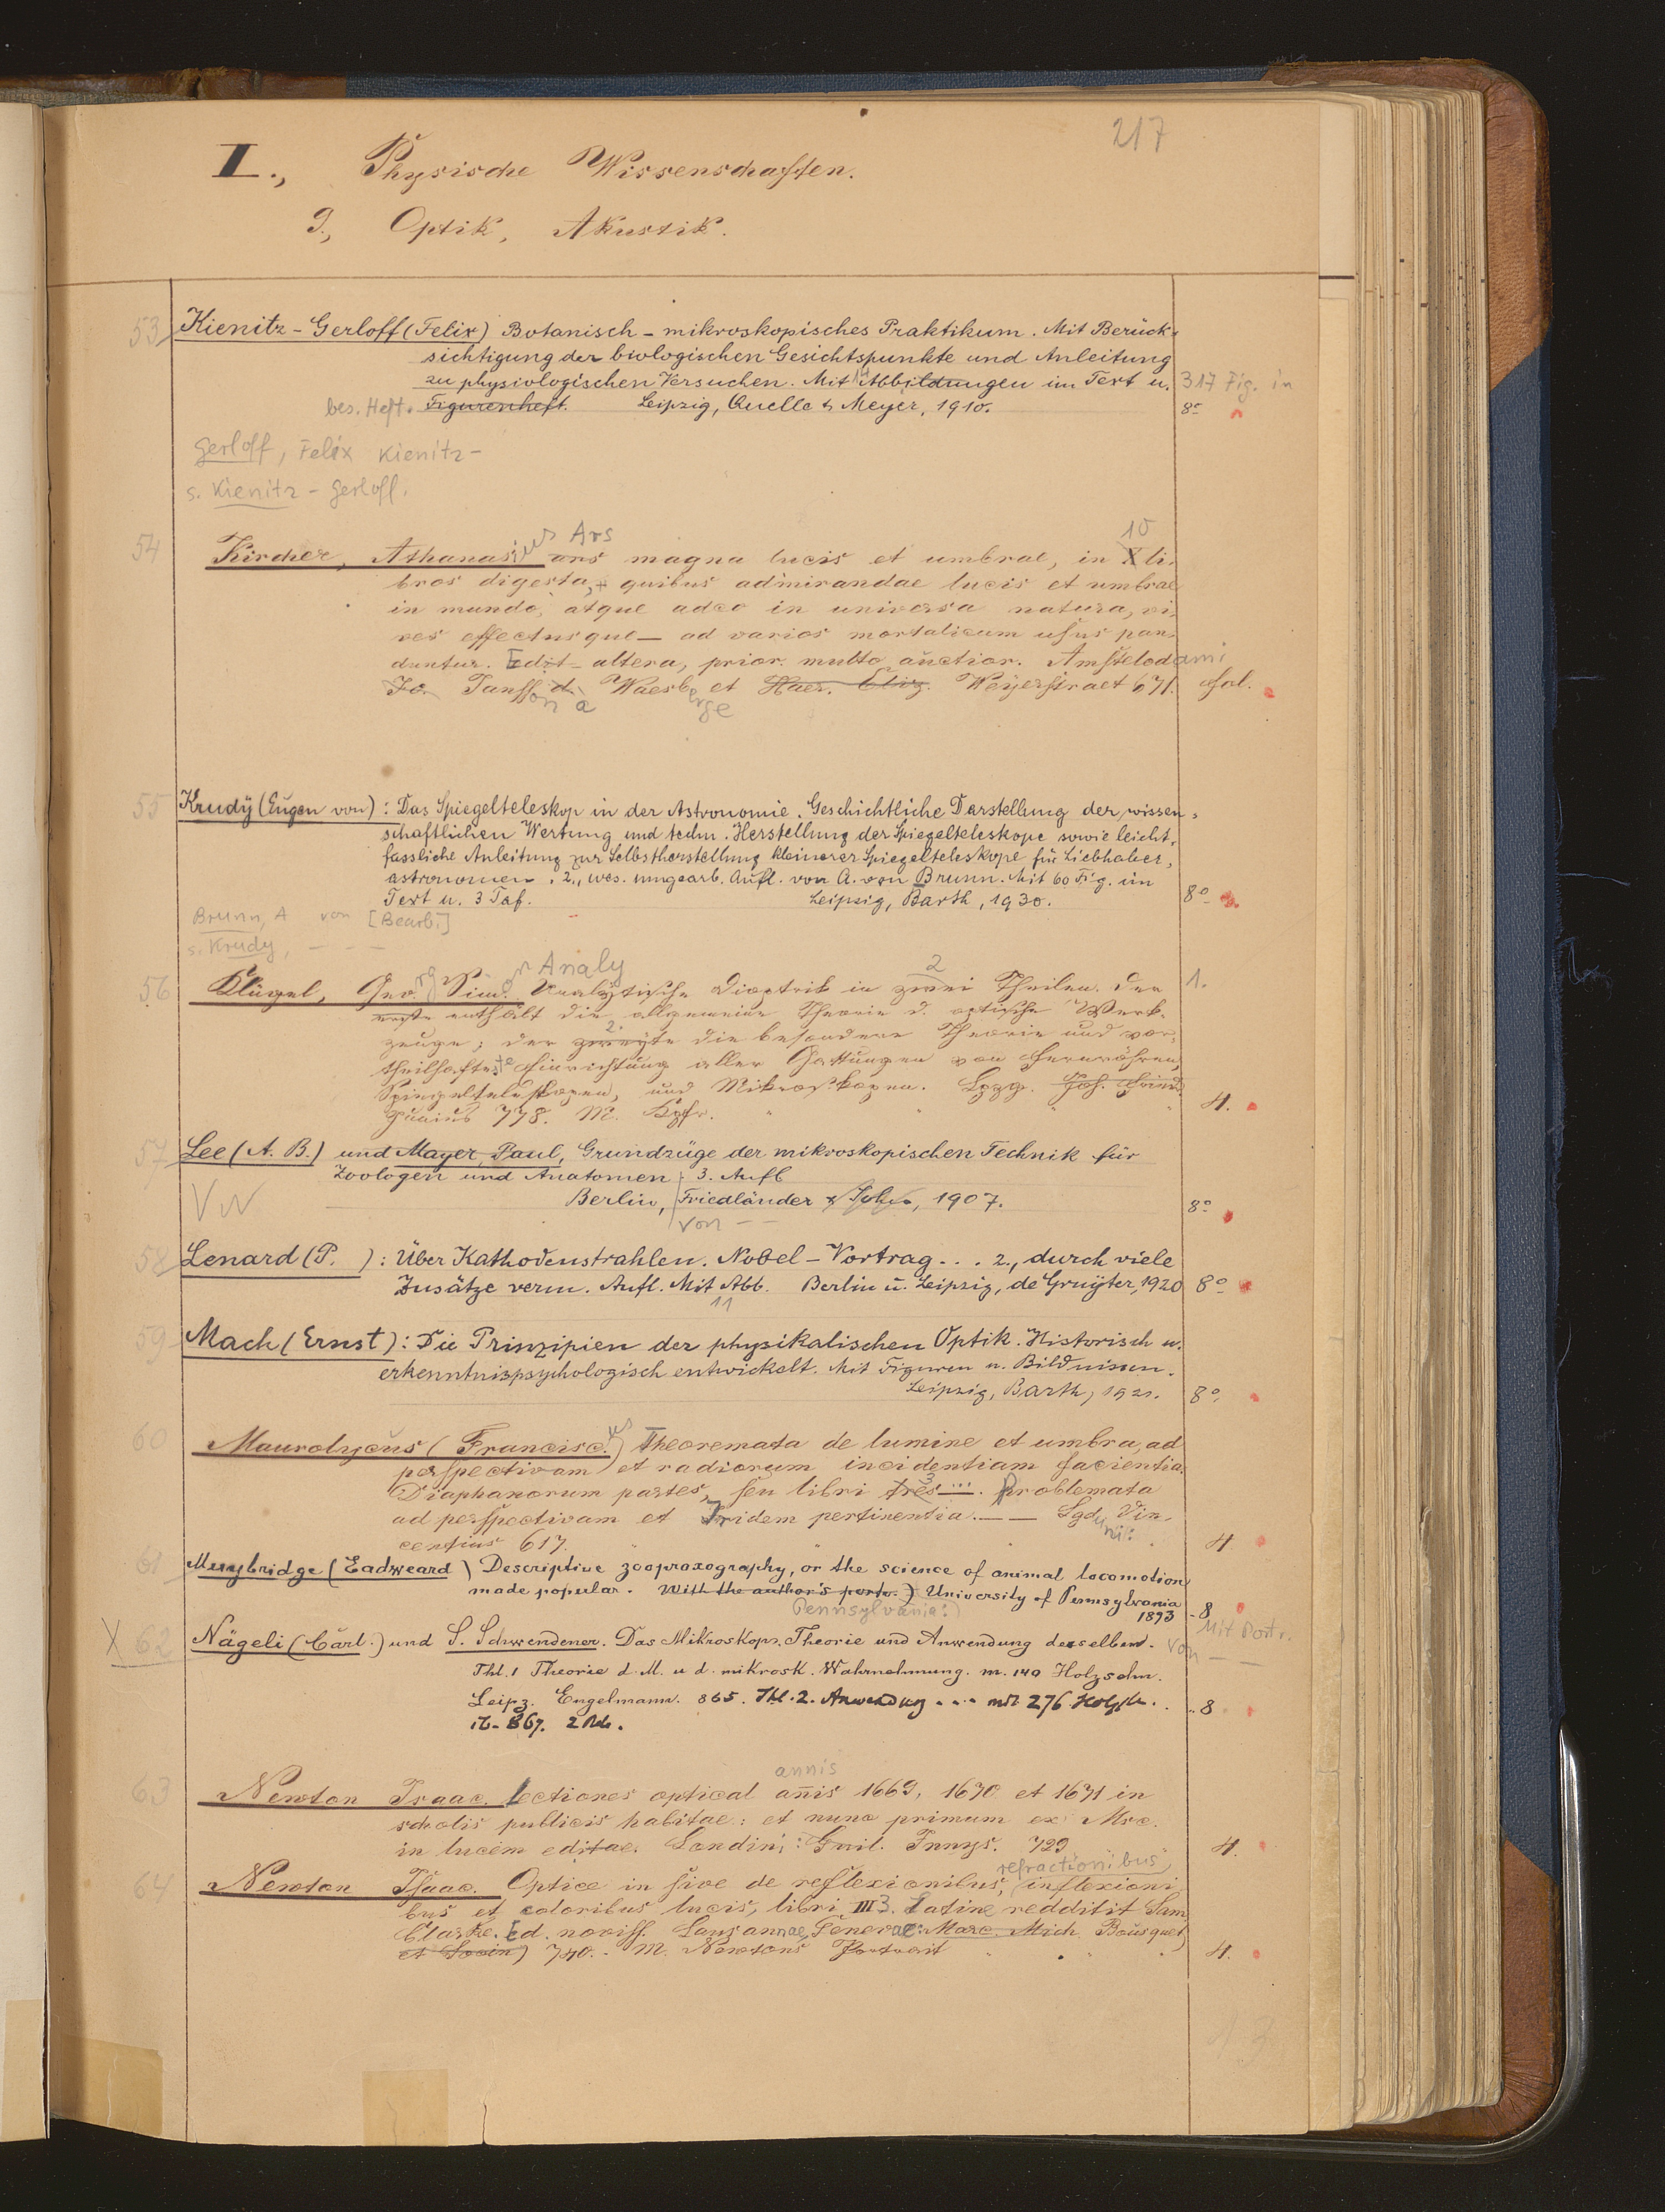 217
I., Physische Wissenschaften.
I., Optik, Akustik.
53 Kienitz-Gerloff (Felix) Botanisch-mikroskopisches Praktikum. Mit Berück-
sichtigung der biologischen Gesichtspunkte und Anleitung
zu physiologischen Versuchen. Mit 14 Abbildungen im Text u. 317 Fig. in
bes. Heft. Figurenheft. Leipzig, Quelle & Meyer, 1910. 8°
Gerloff, Felix Kienitz-
s. Kienitz-Gerloff.
ius Ars 10
54 Kircher, Athanasi ars magna lucis et umbrae, in X li-
bros digesta, quibus admirandae lucis et umbrae
in mundo, atque adeo in universa natura, vi-
res effectusque — ad varios mortalium usus pan-
duntur. Edit altera, prior. multo auctior. Amstelodami
Jo Janss on à Waesberge et Haer. Eliz. Weyerstraet 671. fol.
55 Krudy (Eugen von): Das Spiegelteleskop in der Astronomie. Geschichtliche Darstellung der wissen-
schaftlichen Wertung und techn. Herstellung der Spiegelteleskope sowie leicht-
fassliche Anleitung zur Selbstherstellung kleinerer Spiegelteleskope für Liebhaber-
astronomen. 2., wes. umgearb. Aufl. von A. von Brunn. Mit 60 Fig. im
Text u. 3 Taf. Leipzig, Barth, 1930. 8°
Brunn, A von [Bearb.]
s. Krudy, — — —
rg on Analy 2
56 Klügel, Geo. Sim. Analytische Dioptrik in zwei Theilen. Der 1.
erste enthält die allgemeine Theorie d. optische Werk-
zeuge; der zweyte 2. die besondere Theorie und vor-
theilhafteste Einrichtung aller Gattungen von Fernröhren,
Spiegelteleskopen, und Mikroskopen. Lpzg. Joh. Fried.
Junius 778. M. Kpfr. 4.
57 Lee (A. B.) und Mayer, Paul, Grundzüge der mikroskopischen Technik für
Zoologen und Anatomen; 3. Aufl
VN Berlin, Friedländer & Sohn, 1907. 8°
von — —
58 Lenard (P. ): Über Kathodenstrahlen. Nobel-Vortrag... 2., durch viele
Zusätze verm. Aufl. Mit Abb. Berlin u. Leipzig, de Gruyter, 1920 8°
11
59 Mach (Ernst): Die Prinzipien der physikalischen Optik. Historisch u.
erkenntnispsychologisch entwickelt. Mit Figuren u. Bildnissen.
Leipzig, Barth, 1921. 8°
us
60 Maurolycus (Francisc.) Theoremata de lumine et umbra, ad
perspectivam et radiorum incidentiam facientia.
Diaphanorum partes, seu libri tres 3 .... Problemata
ad perspectivam et Iridem pertinentia. — — Lgduni: Vin-
centius 617. 4
61 Muybridge (Eadweard) Descriptive zoopraxography, or the science of animal locomotion
made popular. With the author's portr. University of Pennsylvania
Pennsylvania: 1893 8
Mit Portr.
X 62 Nägeli (Carl.) und S. Schwendener. Das Mikroskop. Theorie und Anwendung desselben. von — —
Thl. 1 Theorie d. M. u d. mikrosk. Wahrnehmung. m. 140 Holzschn.
Leipz. Engelmann. 865. Thl. 2. Anwendung .... mit 276 Holzsch. 8
ib. 867. 2 Bde.
annis
63 Newton Isaac. Lectiones opticae añis 1669, 1670 et 1671 in
scholis publicis habitae: et nunc primum ex Msc.
in lucem editae. Londini: Guil. Innys. 729 4.
refractionibus,
64 Newton Isaac. Optice in sive de reflexionibus, inflexioni-
bus et coloribus lucis, libri III 3. Latine reddidit Sam
Clarke. Ed. noviss. Lausannae, Genevae: Marc. Mich. Bousquet
et Socior) 740. M. Newtons Portrait 4.
13